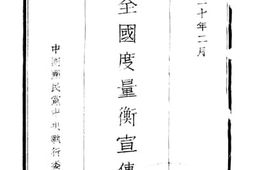 二十年二月
全國度量衡宣傳
中國國民黨中央執行委